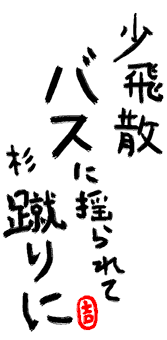 少飛散
バスに揺られて
杉蹴りに
吉